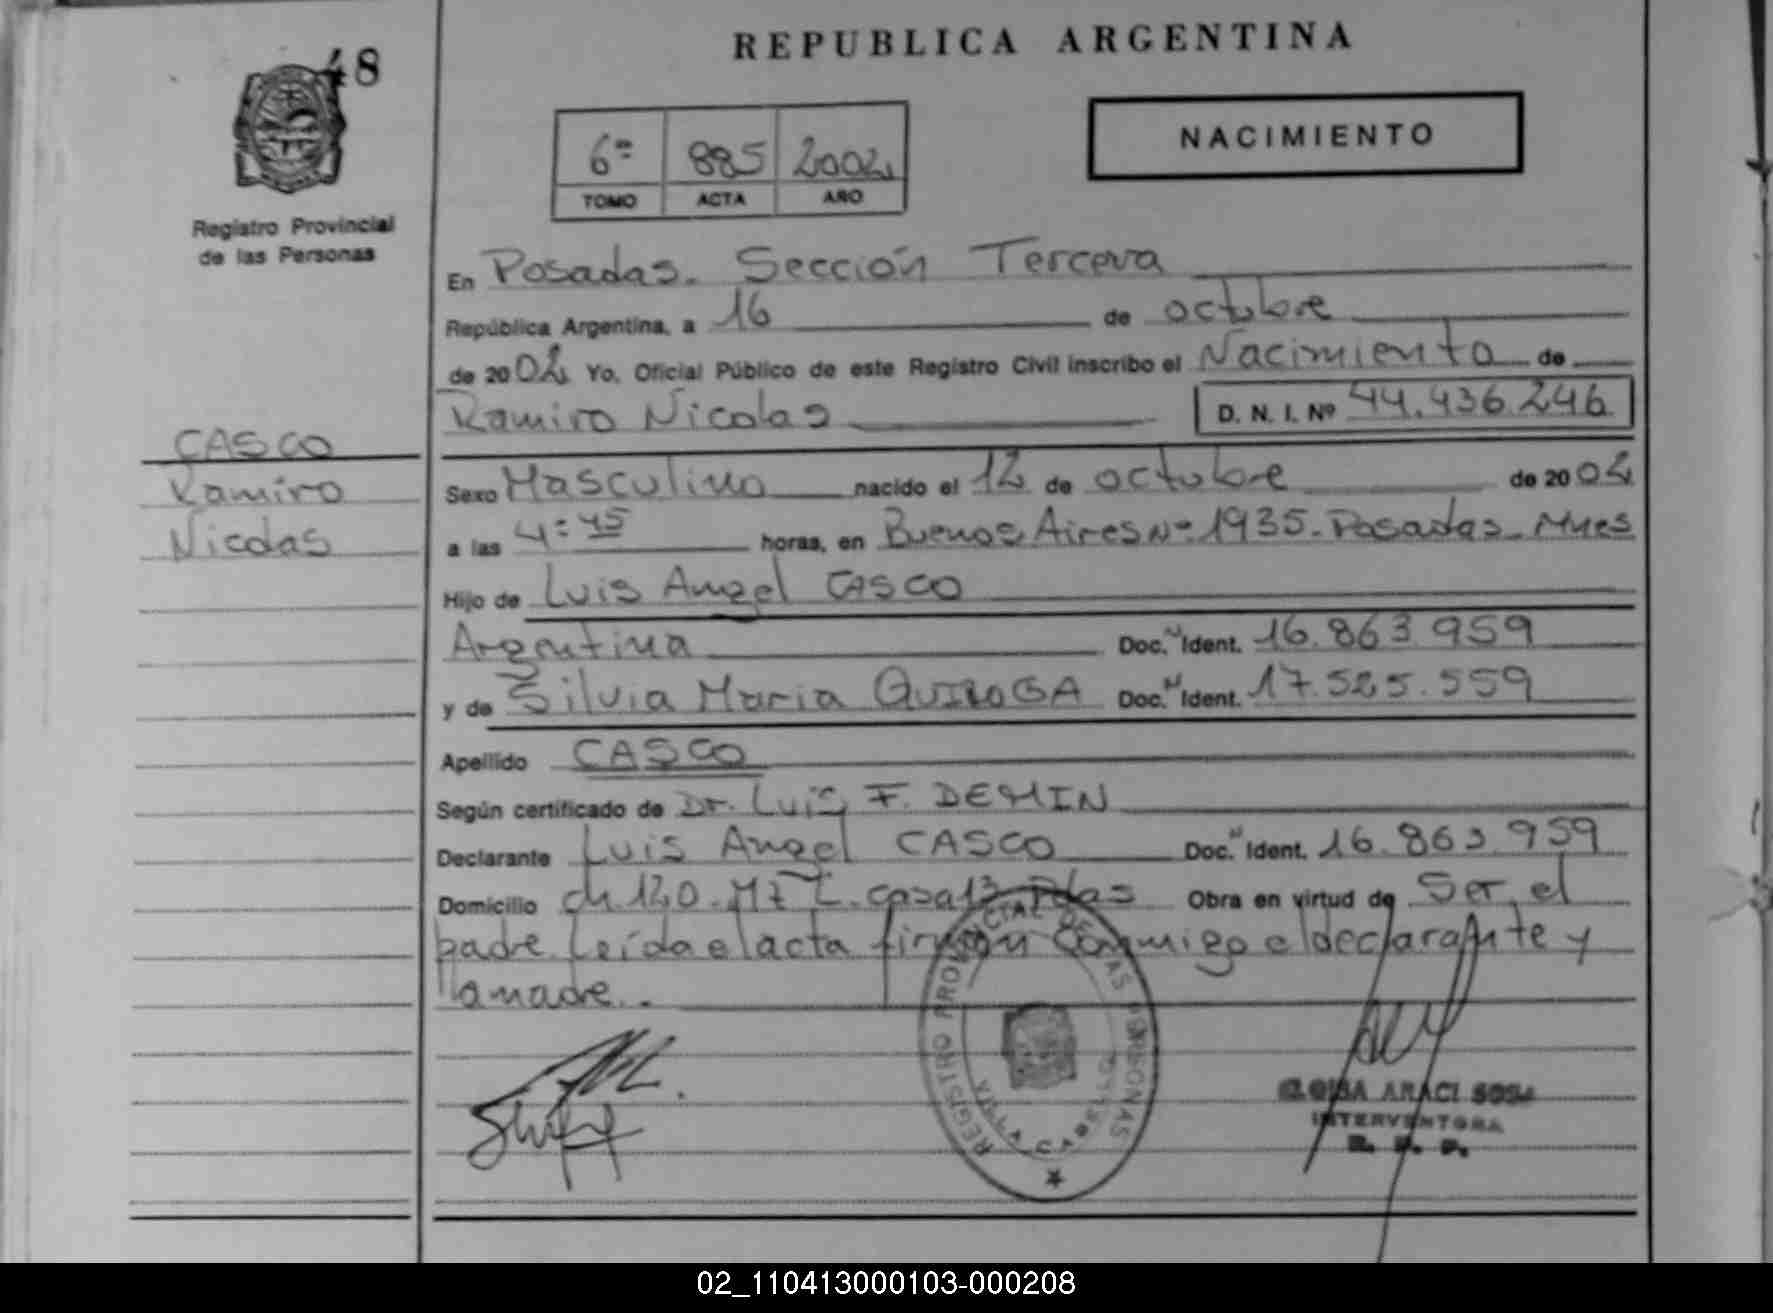 48
REPUBLICA ARGENTINA
NACIMIENTO
6º 885 2002
TOMO ACTA AÑO
Registro Provincial
de las Personas
En Posadas. Sección Tercera
República Argentina, a 16 de octubre
de 2002 Yo, Oficial Público de este Registro Civil inscribo el Nacimiento de
Ramiro Nicolas D. N. I. Nº 44.436.246
CASCO
Ramiro
Nicolas
Sexo Masculino nacido el 12 de octubre de 2002
a las 4:45 horas, en Buenos Aires Nº 1935. Posadas. Mnes
Hijo de Luis Angel CASCO
Argentina Doc. N Ident. 16.863.959
y de Silvia Maria QUIROGA Doc. N Ident. 17.525.559
Apellido CASCO
Según certificado de Dr. Luis F. DEMIN
Declarante Luis Angel CASCO Doc. N Ident. 16.863.959
Domicilio ch. 120. Mz L. casa 13 Pdas Obra en virtud de Ser el
padre Leída el acta firman conmigo el declarante y
la madre.
REGISTRO PROVINCIAL DE LAS PERSONAS
VILLA CABELLO
ELOISA ARACI SOSA
INTERVENTORA
R. P. P.
02_110413000103-000208